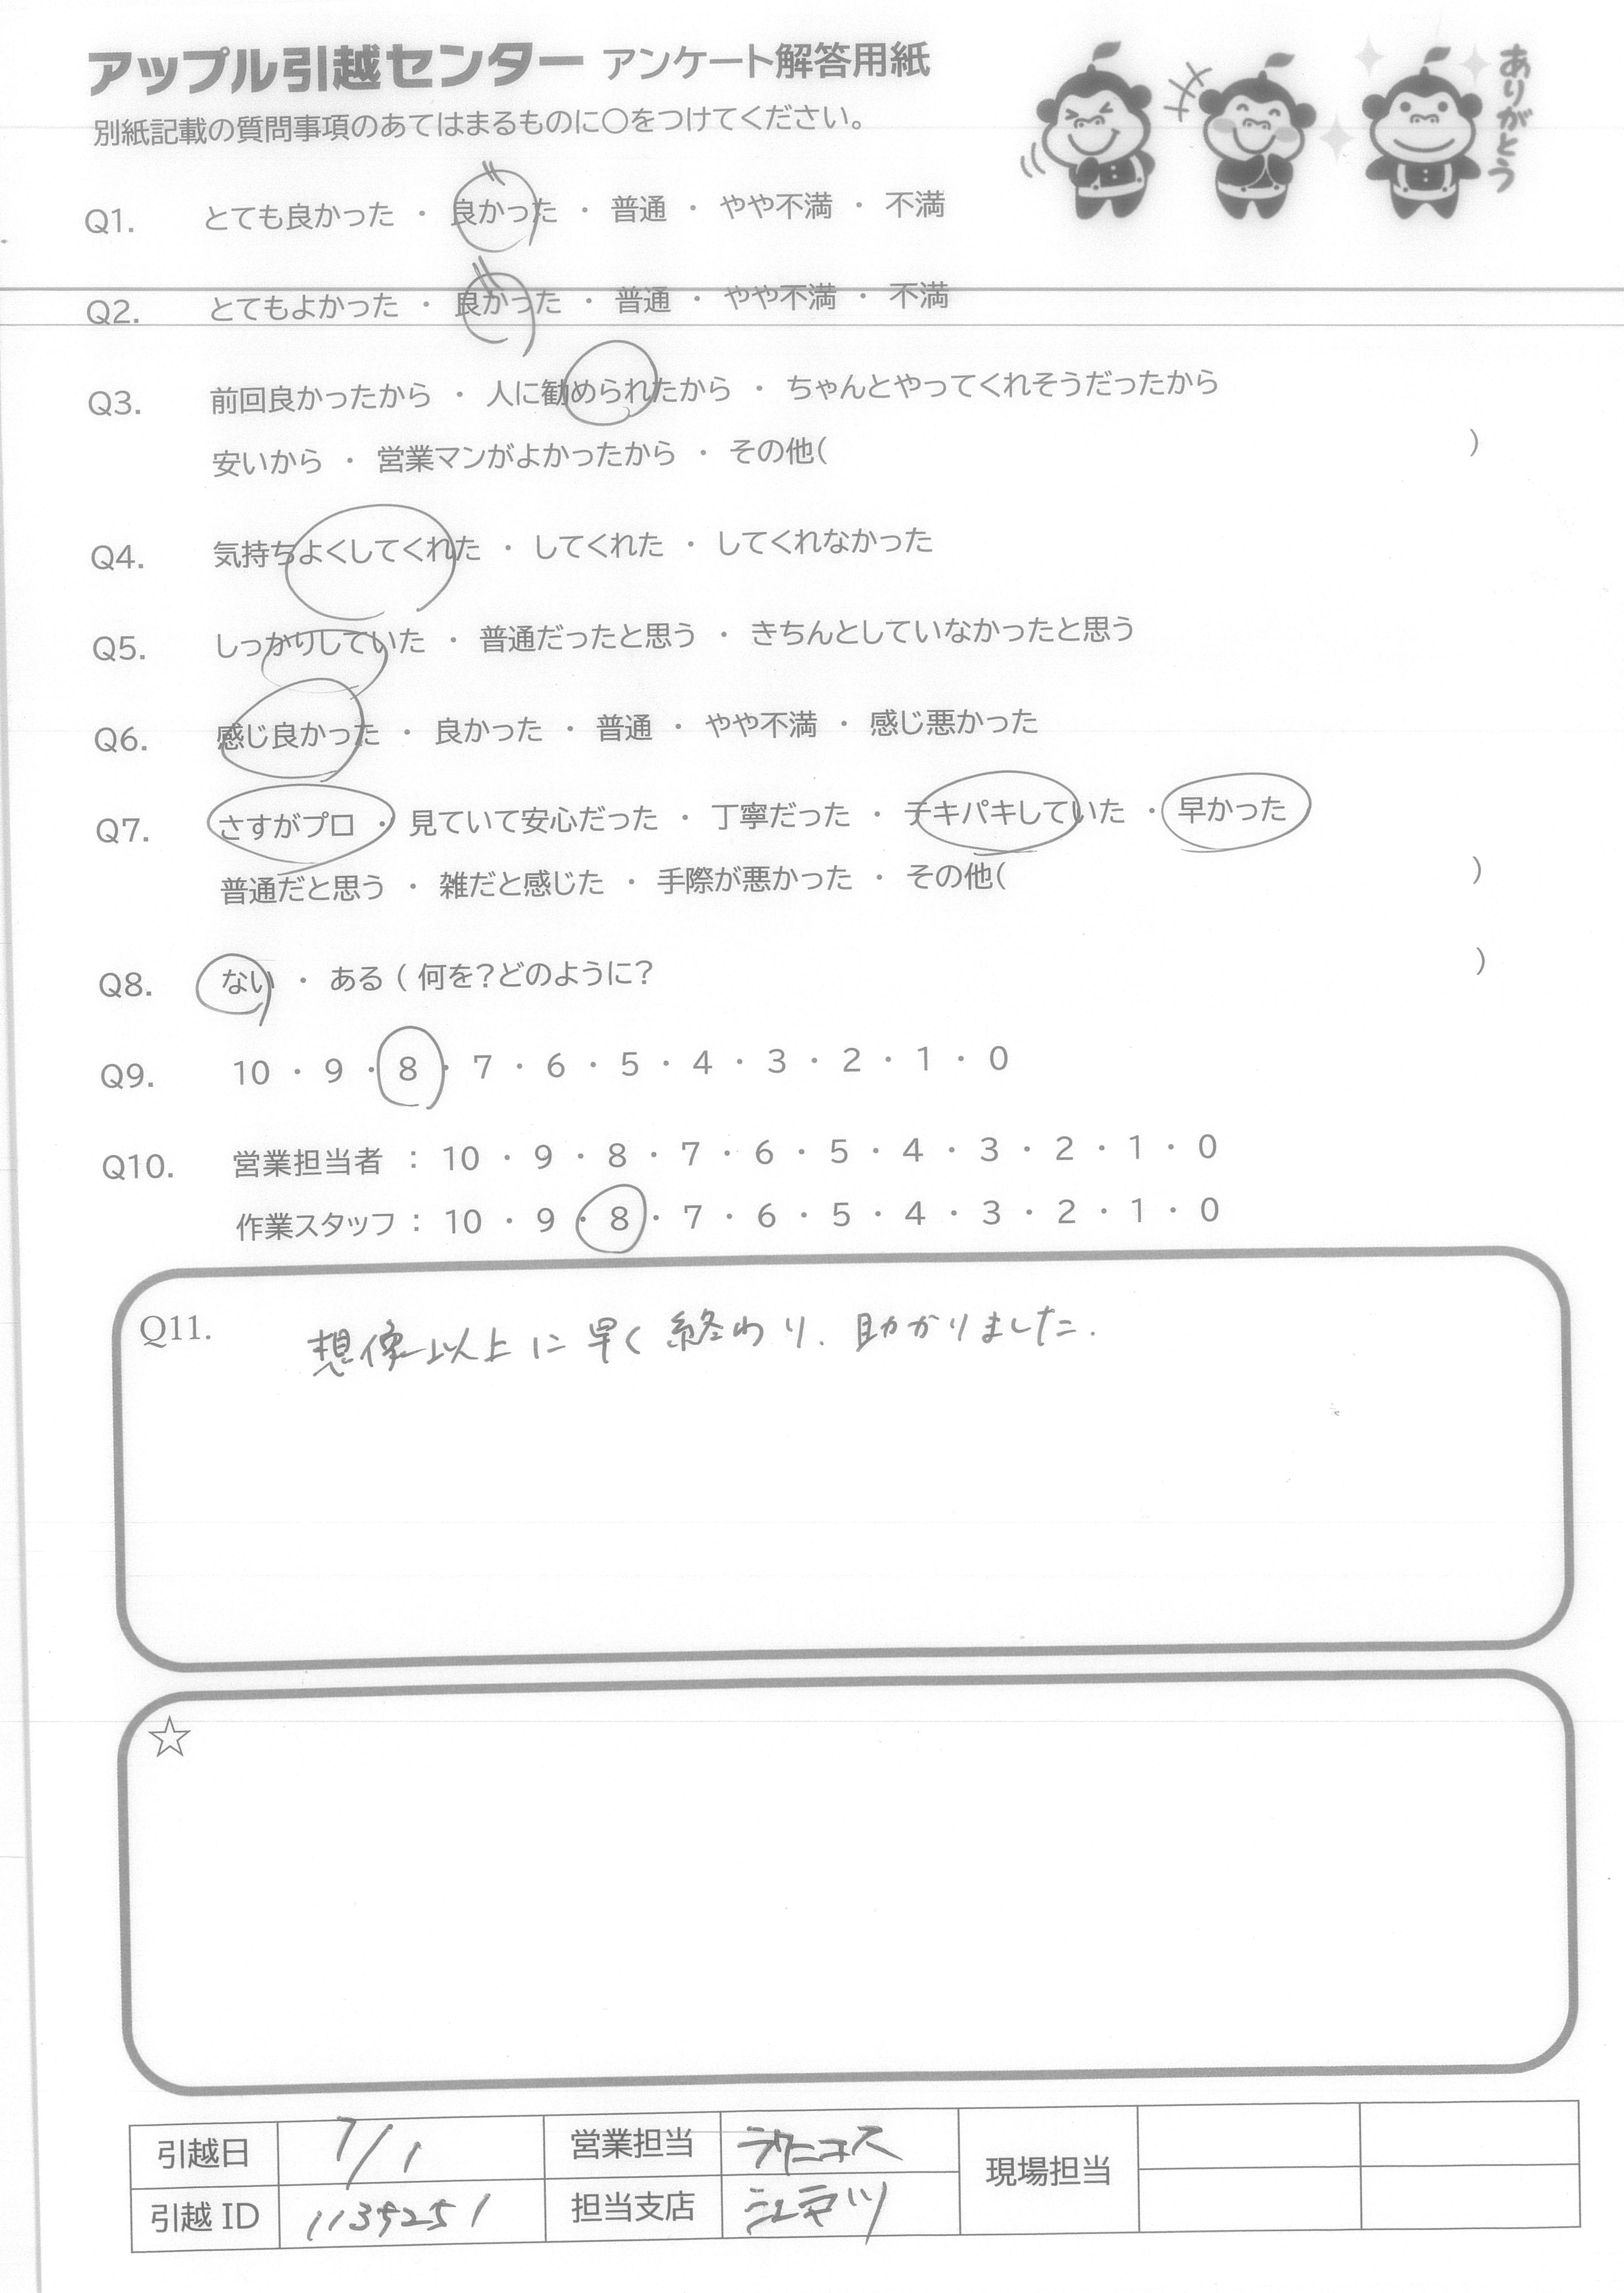 アップル引越センター アンケート解答用紙
別紙記載の質問事項のあてはまるものに〇をつけてください。
ありがとう
Q1. とても良かった ・ 良かった ・ 普通 ・ やや不満 ・ 不満
Q2. とてもよかった ・ 良かった ・ 普通 ・ やや不満 ・ 不満
Q3. 前回良かったから ・ 人に勧められたから ・ ちゃんとやってくれそうだったから
安いから ・ 営業マンがよかったから ・ その他( )
Q4. 気持ちよくしてくれた ・ してくれた ・ してくれなかった
Q5. しっかりしていた ・ 普通だったと思う ・ きちんとしていなかったと思う
Q6. 感じ良かった ・ 良かった ・ 普通 ・ やや不満 ・ 感じ悪かった
Q7. さすがプロ ・ 見ていて安心だった ・ 丁寧だった ・ テキパキしていた ・ 早かった
普通だと思う ・ 雑だと感じた ・ 手際が悪かった ・ その他( )
Q8. ない ・ ある ( 何を?どのように? )
Q9. 10 ・ 9 ・ 8 ・ 7 ・ 6 ・ 5 ・ 4 ・ 3 ・ 2 ・ 1 ・ 0
Q10. 営業担当者 : 10 ・ 9 ・ 8 ・ 7 ・ 6 ・ 5 ・ 4 ・ 3 ・ 2 ・ 1 ・ 0
作業スタッフ : 10 ・ 9 ・ 8 ・ 7 ・ 6 ・ 5 ・ 4 ・ 3 ・ 2 ・ 1 ・ 0
Q11. 想像以上に早く終わり、助かりました.
☆
引越日 7/1 営業担当 現場担当
引越 ID 1135251 担当支店 江戸川